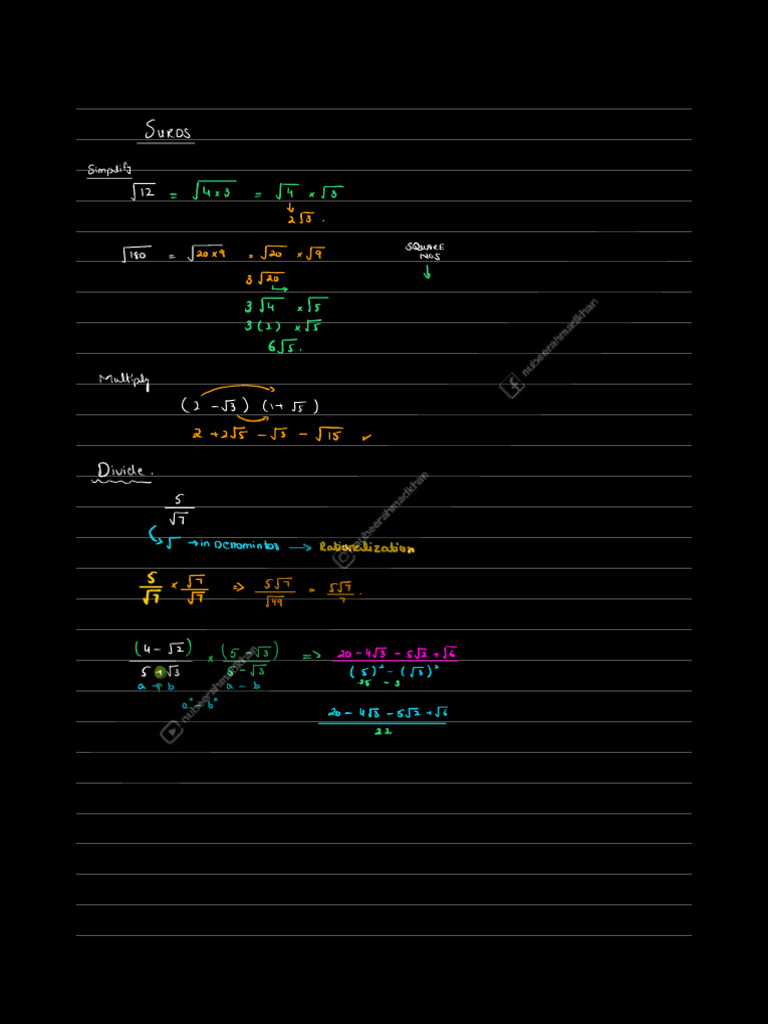 SURDS
Simplify
√12 = √4×3 = √4 × √3
2√3 .
√180 = √20×9 = √20 × √9
SQUARE
NOS
3√20
3√4 × √5
3(2) × √5
6√5 .
Multiply
(2 - √3) (1+ √5)
2 + 2√5 - √3 - √15 ✓
Divide .
5/√7
√ → in Denomintos → Rationalization
5/√7 × √7/√7 => 5√7/√49 = 5√7/7 .
(4 - √2)/(5 + √3) × (5 - √3)/(5 - √3) => (20 - 4√3 - 5√2 + √6)/((5)² - (√3)²)
a + b a - b 25 - 3
a² - b²
(20 - 4√3 - 5√2 + √6)/22
nubeerahmadkhan
nubeerahmadkhan
nubeerahmadkhan